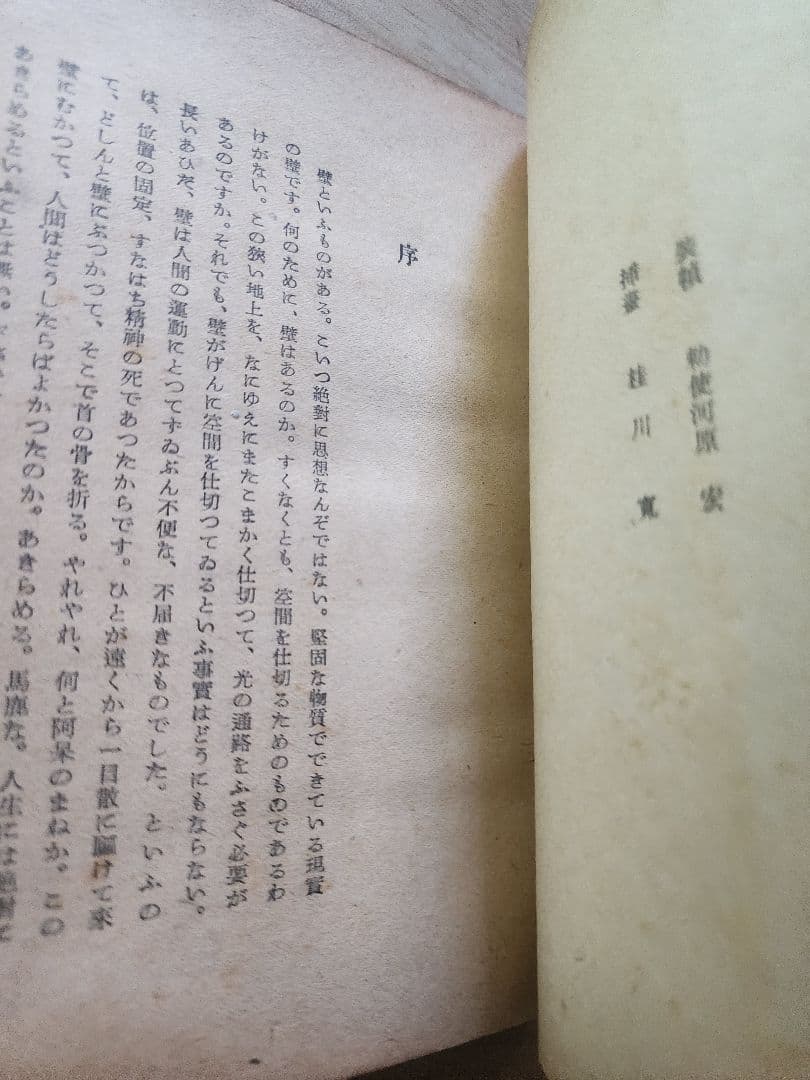 装幀 勅使河原 宏
挿畫 桂川 寛
序
壁といふものがある。こいつ絶對に思想なんぞではない。堅固な物質でできている現實
の壁です。何のために、壁はあるのか。すくなくとも、空間を仕切るためのものであるわ
けがない。この狹い地上を、なにゆえにまたこまかく仕切つて、光の通路をふさぐ必要が
あるのですか。それでも、壁がげんに空間を仕切つてゐるといふ事實はどうにもならない。
長いあひだ、壁は人間の運動にとつてずゐぶん不便な、不屆きなものでした。といふの
は、位置の固定、すなはち精神の死であつたからです。ひとが遠くから一目散に驅けて來
て、どしんと壁にぶつかつて、そこで首の骨を折る。やれやれ、何と阿呆のまねか。この
壁にむかつて、人間はどうしたらばよかつたのか。あきらめる。馬鹿な。人生には絶對に
あきらめるといふことは無い。